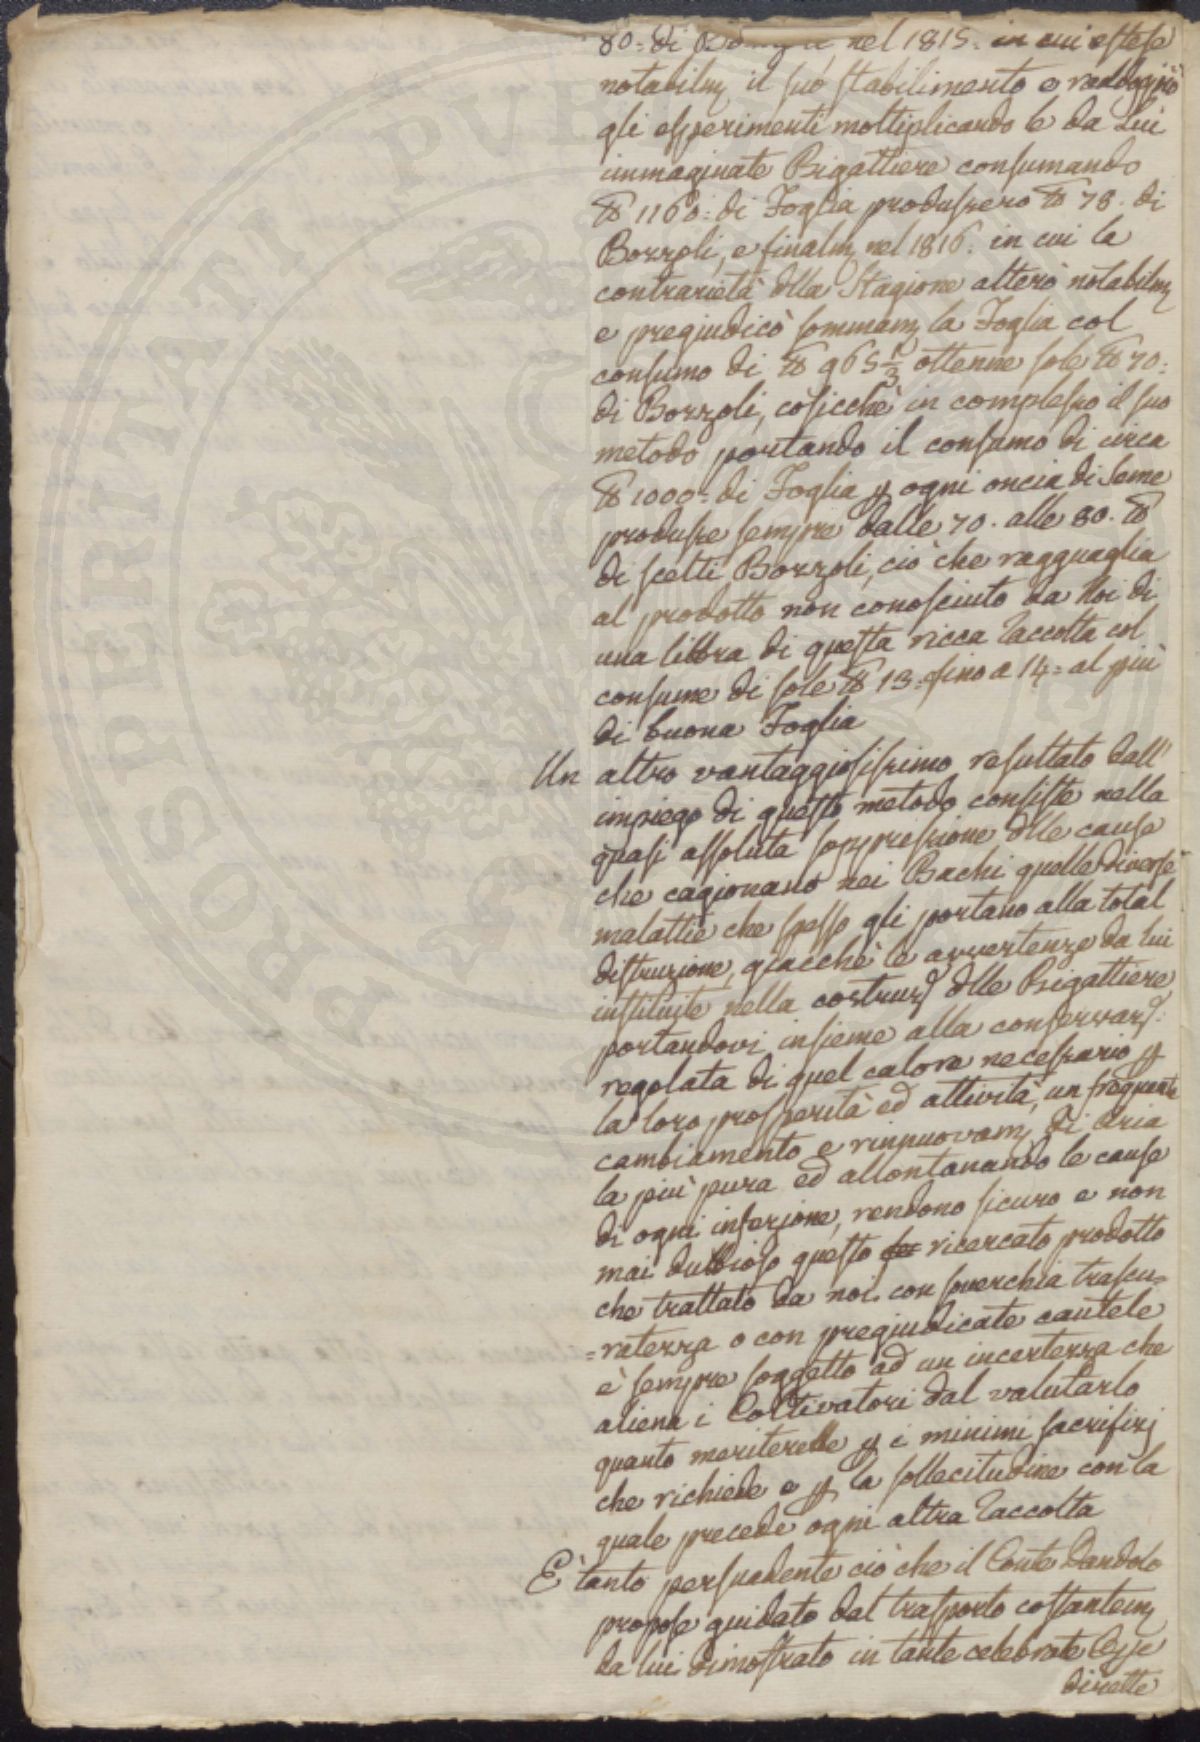 80= di Bozzoli nel 1815. in cui estese
notabilm il suo stabilimento e raddoppiò
gli esperimenti moltiplicando le da Lui
immaginate Bigattiere consumando
℔ 1160: di Foglia produssero ℔ 78. di
Bozzoli, e finalm nel 1816. in cui la
contrarietà dlla Stagione alterò notabilm
e pregiudicò sommam la Foglia col
consumo di ℔ 965 1/3 ottenne sole ℔ 70:
di Bozzoli, cosicchè in complesso il suo
metodo portando il consumo di circa
℔ 1000= di Foglia p ogni oncia di Seme
produsse sempre dalle 70. alle 80. ℔
di scelti Bozzoli, ciò che ragguaglia
al prodotto non conosciuto da Noi di
una libbra di questa ricca Raccolta col
consume di sole ℔ 13= fino a 14= al più
di buona Foglia
Un altro vantaggiosissimo resultato dall'
impiego di questo metodo consiste nella
quasi assoluta soppressione dlle cause
che cagionano nei Bachi quelle diverse
malattie che spesso gli portano alla total
distruzione, giacchè le avvertenze da lui
instituite nella costruz dlle Bigattiere
portandovi insieme alla conservaz:
regolata di quel calore necessario p
la loro prosperità ed attività, un frequente
cambiamento e rinnuovam di Aria
la più pura ed allontanando le cause
di ogni infezione, rendono sicuro e non
mai dubbioso questo ricercato prodotto
che trattato da noi con soverchia trascu=
=ratezza o con pregiudicate cautele
è sempre soggetto ad un incertezza che
aliena i Coltivatori dal valutarlo
quanto meriterebbe p i minimi sacrifizj
che richiede e p la sollecitudine con la
quale precede ogni altra Raccolta
È tanto persuadente ciò che il Conte Dandolo
propose guidato dal trasporto costantem
da lui dimostrato in tante celebrate Opje
dirette